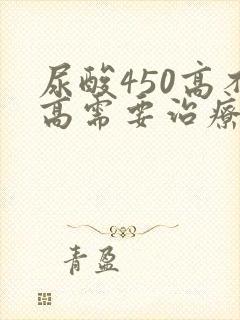 尿酸450高不
高需要治疗
青盈